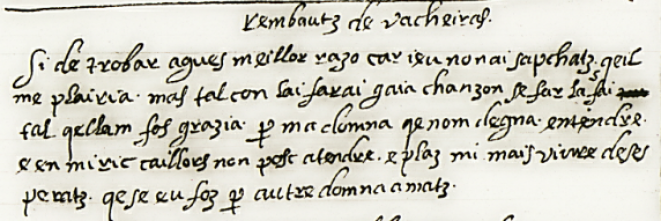 Rembautz de vacheiras.
Si de trobar agues meillor razo car ieu non ai sapchatz. qeil
me plairia. mas tal con lai farai gaia chanzon se far la sai
tal qellam fos grazia. p ma domna qe nom degna. entendre.
e en mi ric caillors non pesc atendre. e plaz mi mais viure deses
peratz. qe se eu foz p autre domna amatz.